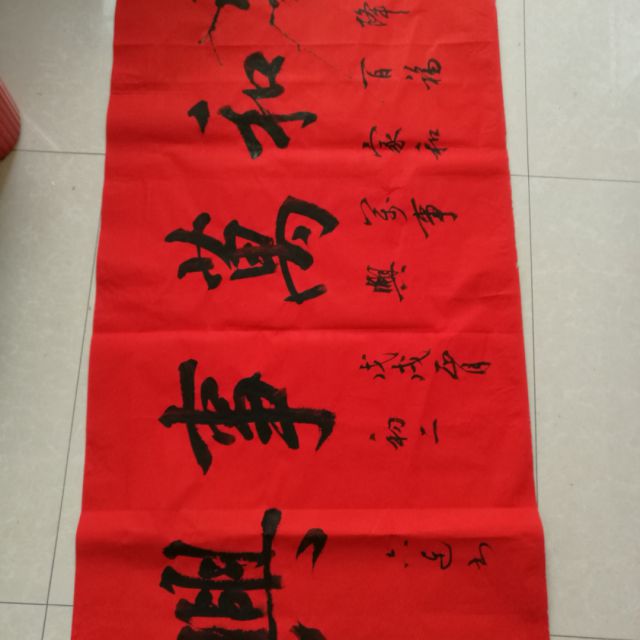 和萬事興
降
百福
家和
万事
興
戊戌正月
初二
书